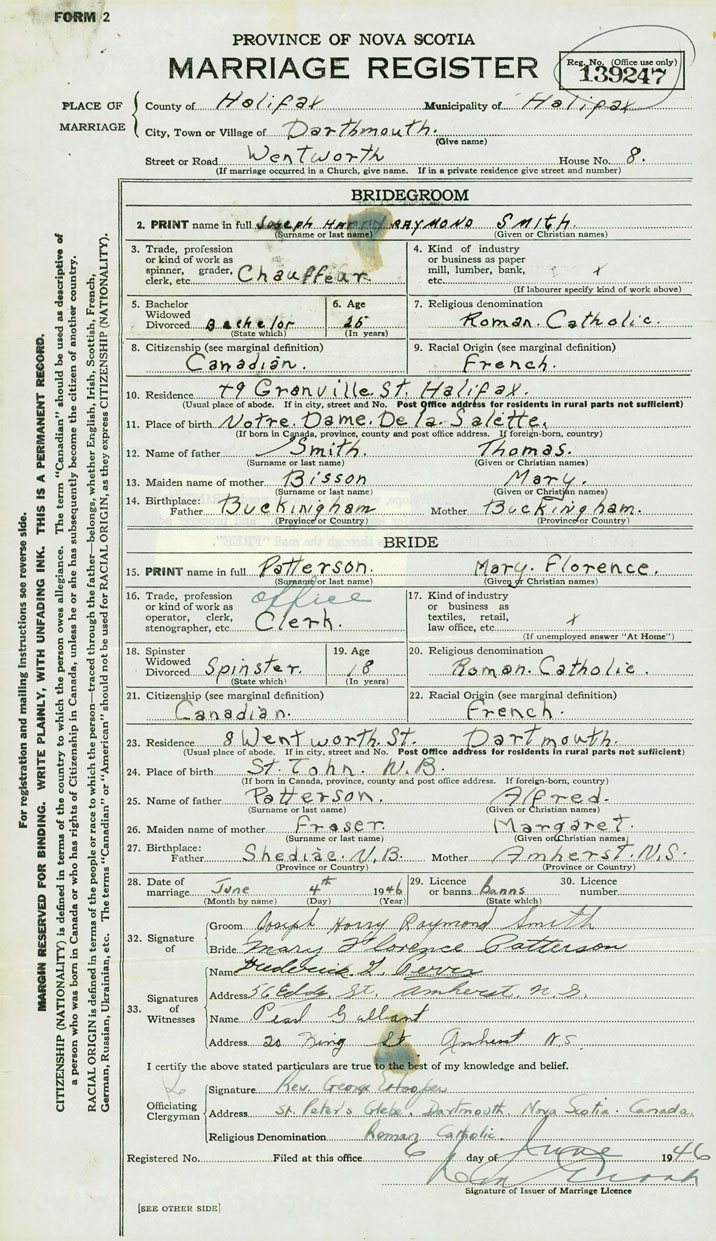 FORM 2
PROVINCE OF NOVA SCOTIA
MARRIAGE REGISTER
Reg. No. (Office use only)
139247
PLACE OF MARRIAGE
County of Halifax Municipality of Halifax
City, Town or Village of Darthmouth.
(Give name)
Street or Road Wentworth House No. 8.
(If marriage occurred in a Church, give name. If in a private residence give street and number)
BRIDEGROOM
2. PRINT name in full Joseph HARRY RAYMOND Smith.
(Surname or last name) (Given or Christian names)
3. Trade, profession or kind of work as spinner, grader, clerk, etc. Chauffeur
4. Kind of industry or business as paper mill, lumber, bank, etc. x
(If labourer specify kind of work above)
5. Bachelor Widowed Divorced Bachelor
(State which)
6. Age 25
(In years)
7. Religious denomination
Roman. Catholic.
8. Citizenship (see marginal definition)
Canadian.
9. Racial Origin (see marginal definition)
French.
10. Residence 49 Granville St. Halifax.
(Usual place of abode. If in city, street and No. Post Office address for residents in rural parts not sufficient)
11. Place of birth Notre. Dame. De la. Salette.
(If born in Canada, province, county and post office address. If foreign-born, country)
12. Name of father Smith. Thomas.
(Surname or last name) (Given or Christian names)
13. Maiden name of mother Bisson Mary.
(Surname or last name) (Given or Christian names)
14. Birthplace: Father Buckinigham Mother Buckingham.
(Province or Country) (Province or Country)
BRIDE
15. PRINT name in full Patterson. Mary. Florence.
(Surname or last name) (Given or Christian names)
16. Trade, profession or kind of work as operator, clerk, stenographer, etc. office Clerk.
17. Kind of industry or business as textiles, retail, law office, etc. x
(If unemployed answer "At Home")
18. Spinster Widowed Divorced Spinster.
(State which)
19. Age 18
(In years)
20. Religious denomination
Roman. Catholic.
21. Citizenship (see marginal definition)
Canadian.
22. Racial Origin (see marginal definition)
French.
23. Residence 8 Wentworth. St. Dartmouth.
(Usual place of abode. If in city, street and No. Post Office address for residents in rural parts not sufficient)
24. Place of birth St. John. N.B.
(If born in Canada, province, county and post office address. If foreign-born, country)
25. Name of father Patterson. Alfred.
(Surname or last name) (Given or Christian names)
26. Maiden name of mother Fraser. Margaret.
(Surname or last name) (Given or Christian names)
27. Birthplace: Father Shediac. N.B. Mother Amherst. N.S.
(Province or Country) (Province or Country)
28. Date of marriage June 4th 1946
(Month by name) (Day) (Year)
29. Licence or banns Banns
(State which)
30. Licence number
32. Signature of
Groom Joseph Harry Raymond Smith
Bride Mary Florence Patterson
33. Signatures of Witnesses
Name Frederick
Address 56 Eddy St. Amherst N.S.
Name Pearl Gallant
Address 20 King St Amherst N.S.
I certify the above stated particulars are true to the best of my knowledge and belief.
Officiating Clergyman
Signature Rev. George
Address St. Peter's Glebe. Dartmouth, Nova Scotia. Canada.
Religious Denomination Roman Catholic.
Registered No. Filed at this office 6 day of June 1946
Signature of Issuer of Marriage Licence
[SEE OTHER SIDE]
For registration and mailing instructions see reverse side.
MARGIN RESERVED FOR BINDING. WRITE PLAINLY, WITH UNFADING INK. THIS IS A PERMANENT RECORD.
CITIZENSHIP (NATIONALITY) is defined in terms of the country to which the person owes allegiance. The term "Canadian" should be used as descriptive of
a person who was born in Canada or who has rights of Citizenship in Canada, unless he or she has subsequently become the citizen of another country.
RACIAL ORIGIN is defined in terms of the people or race to which the person—traced through the father—belongs, whether English, Irish, Scottish, French,
German, Russian, Ukrainian, etc. The terms "Canadian" or "American" should not be used for RACIAL ORIGIN, as they express CITIZENSHIP (NATIONALITY).